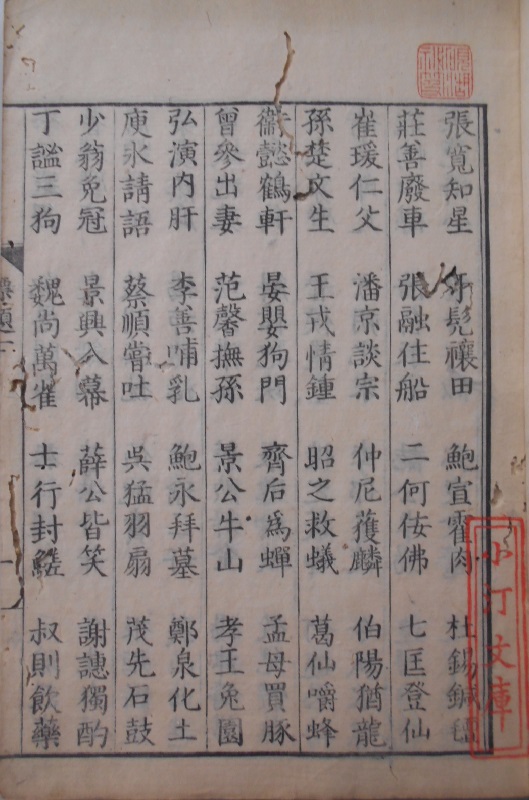 張寬知星 牙髡禳田 鮑宣霍肉 杜錫鍼氊
莊善廢車 張融住船 二何佞佛 七匡登仙
崔瑗仁父 潘京談宗 仲尼獲麟 伯陽猶龍
孫楚文生 王戎情鍾 昭之救蟻 葛仙嚼蜂
衞懿鶴軒 晏嬰狗門 齊后爲蟬 孟母買豚
曾參出妻 范馨撫孫 景公牛山 孝王兔園
弘演內肝 李善哺乳 鮑永拜墓 鄭泉化土
庾氷請語 蔡順嘗吐 吳猛羽扇 茂先石鼓
少翁免冠 景興入幕 薛公皆笑 謝譓獨酌
丁謐三狗 魏尚萬雀 士行封鮺 叔則飲藥
標題 二
小汀文庫